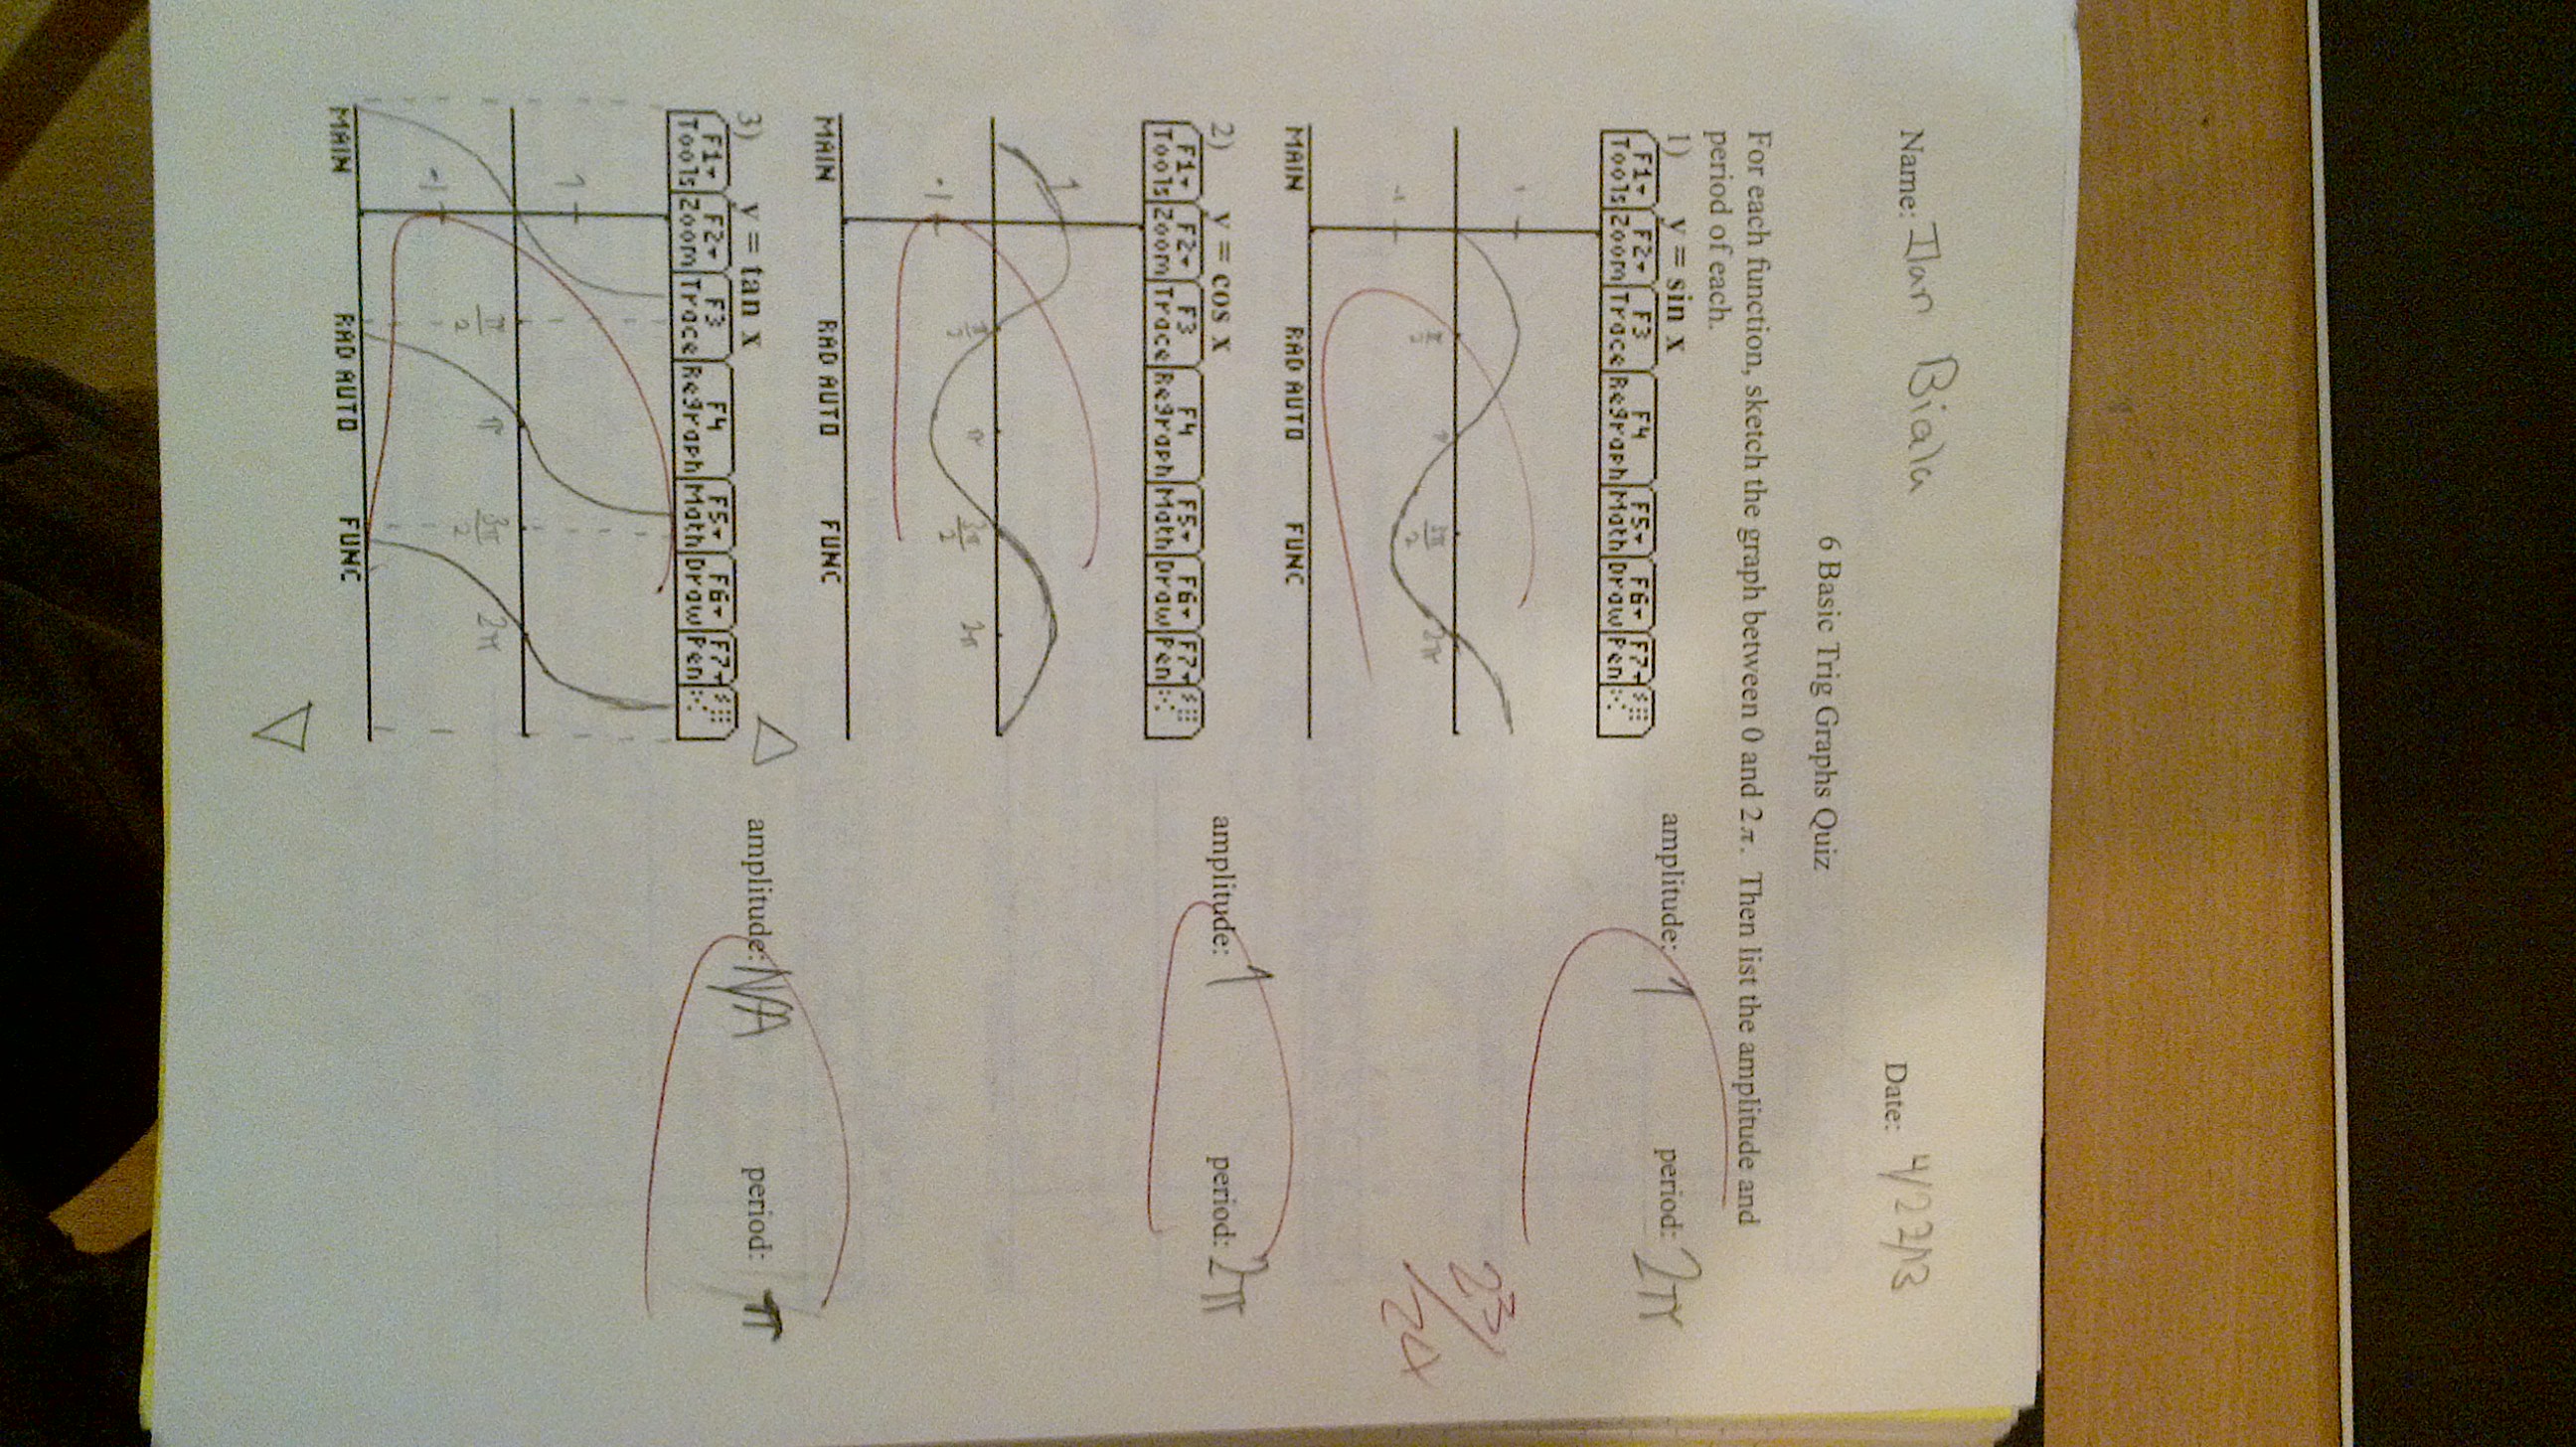 Name: Ilan Biala Date: 4/22/13
6 Basic Trig Graphs Quiz
For each function, sketch the graph between 0 and 2π. Then list the amplitude and
period of each.
1) y = sin x amplitude: 1 period: 2π
F1 Tools F2 Zoom F3 Trace F4 Regraph F5 Math F6 Draw F7 Pen
1
-1 π/2 π 3π/2 2π
23/24
MAIN RAD AUTO FUNC
2) y = cos x amplitude: 1 period: 2π
F1 Tools F2 Zoom F3 Trace F4 Regraph F5 Math F6 Draw F7 Pen
1
-1 π/2 π 3π/2 2π
MAIN RAD AUTO FUNC
3) y = tan x amplitude: N/A period: π
F1 Tools F2 Zoom F3 Trace F4 Regraph F5 Math F6 Draw F7 Pen
1
-1 π/2 π 3π/2 2π
MAIN RAD AUTO FUNC